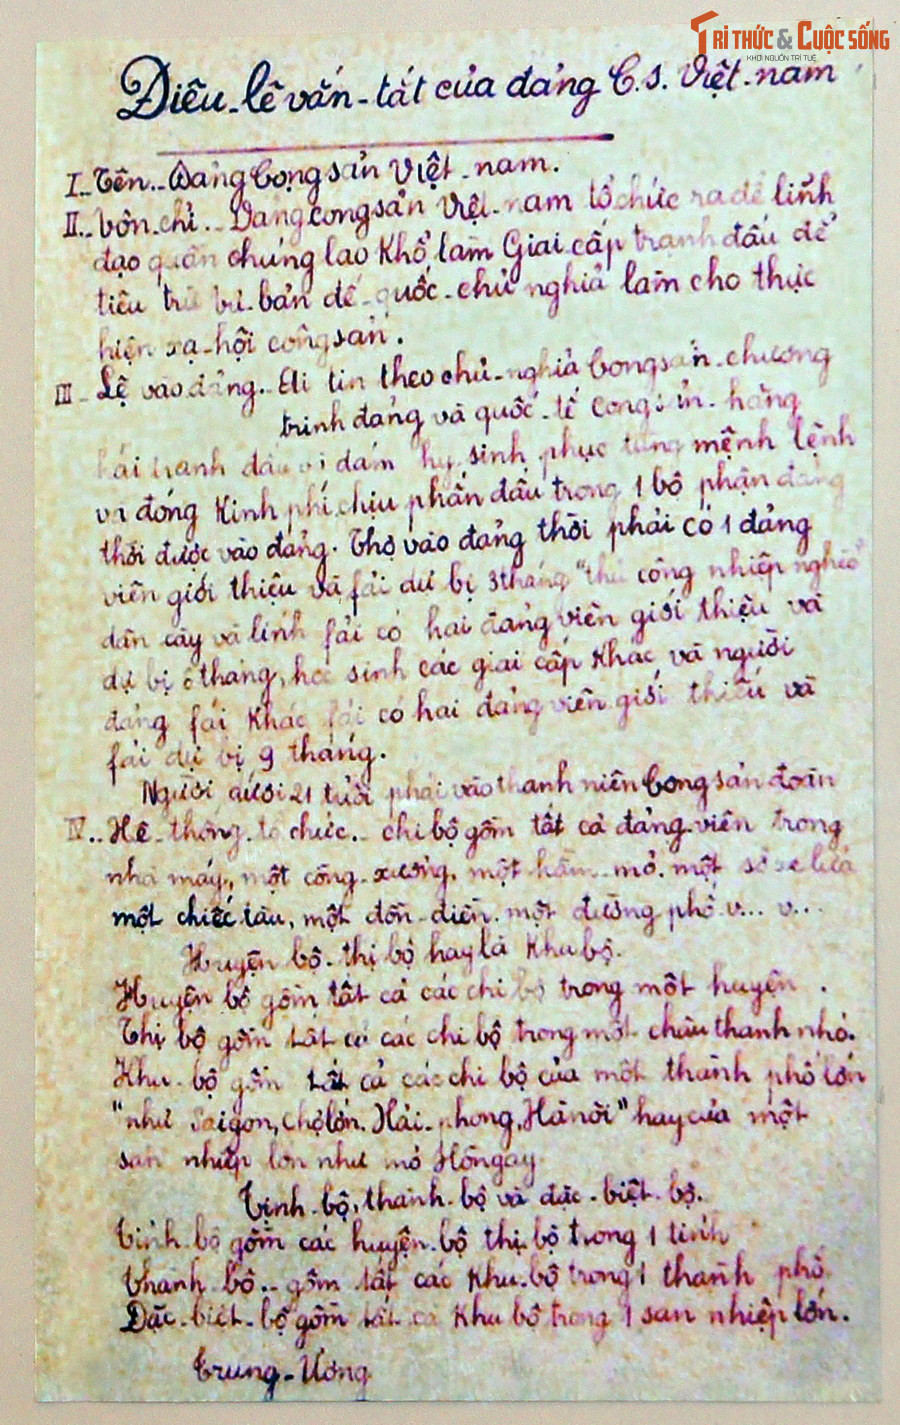 TRI THỨC & CUỘC SỐNG
KHƠI NGUỒN TRÍ TUỆ
Điêu-lê vắn-tắt của đảng C.S. Việt-nam
I.. Tên.. Đảng Cộng sản Việt-nam.
II.. Vôn-chỉ.. Đảng cộng sản Việt-nam tổ chức ra để lĩnh
đạo quần chúng lao khổ làm Giai cấp tranh đấu để
tiêu trừ tư-bản đế-quốc-chủ nghĩa làm cho thực
hiện xạ-hội cộng sản.
III- Lệ vào đảng.. Ai tin theo chủ-nghĩa Cộng sản-chương
trình đảng và quốc-tế cộng sản-hăng
hái tranh đấu và dám hy sinh phục tùng mệnh lệnh
và đóng kinh phí, chịu phấn đấu trong 1 bộ phận đảng
thời được vào đảng. Thợ vào đảng thời phải có 1 đảng
viên giới thiệu và fải dự bị 3 tháng "thủ công nhiệp nghèo"
dân cày và lính fải có hai đảng viên giới thiệu và
dự bị 6 tháng, học sinh các giai cấp khác và người
đảng fái khác fải có hai đảng viên giới thiệu và
fải dự bị 9 tháng.
Người dưới 21 tuổi phải vào thanh niên Cộng sản đoàn
IV.. Hệ-thống-tổ chức.. chi bộ gồm tất cả đảng-viên trong
nhà máy, một công-xưởng, một hầm-mỏ, một sở xe lửa
một chiếc tàu, một đồn-điền, một đường phố v... v...
Huyện bộ-thị bộ hay là Khu bộ.
Huyện bộ gồm tất cả các chi bộ trong một huyện.
Thị bộ gồm tất cả các chi bộ trong một châu thành nhỏ.
Khu-bộ gồm tất cả các chi bộ của một thành phố lớn
"như Saigon, Chợ lớn, Hải-phong, Hà nội" hay của một
sản nhiệp lớn như mỏ Hòngay
Tỉnh-bộ, thành-bộ và đặc-biệt-bộ.
Tỉnh-bộ gồm các huyện-bộ thị bộ trong 1 tỉnh
Thành-bộ.. gồm tất các Khu-bộ trong 1 thành phố
Đặc-biệt-bộ gồm tất cả Khu bộ trong 1 sản nhiệp lớn.
Trung-Ương